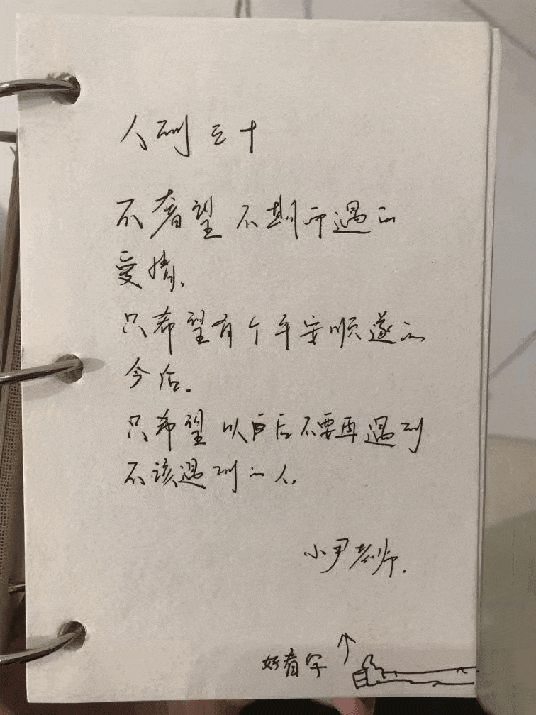 人到三十
不奢望不期而遇的
爱情,
只希望有个平安顺遂的
今后.
只希望以后不要再遇到
不该遇到的人.
小尹老师.
好看字